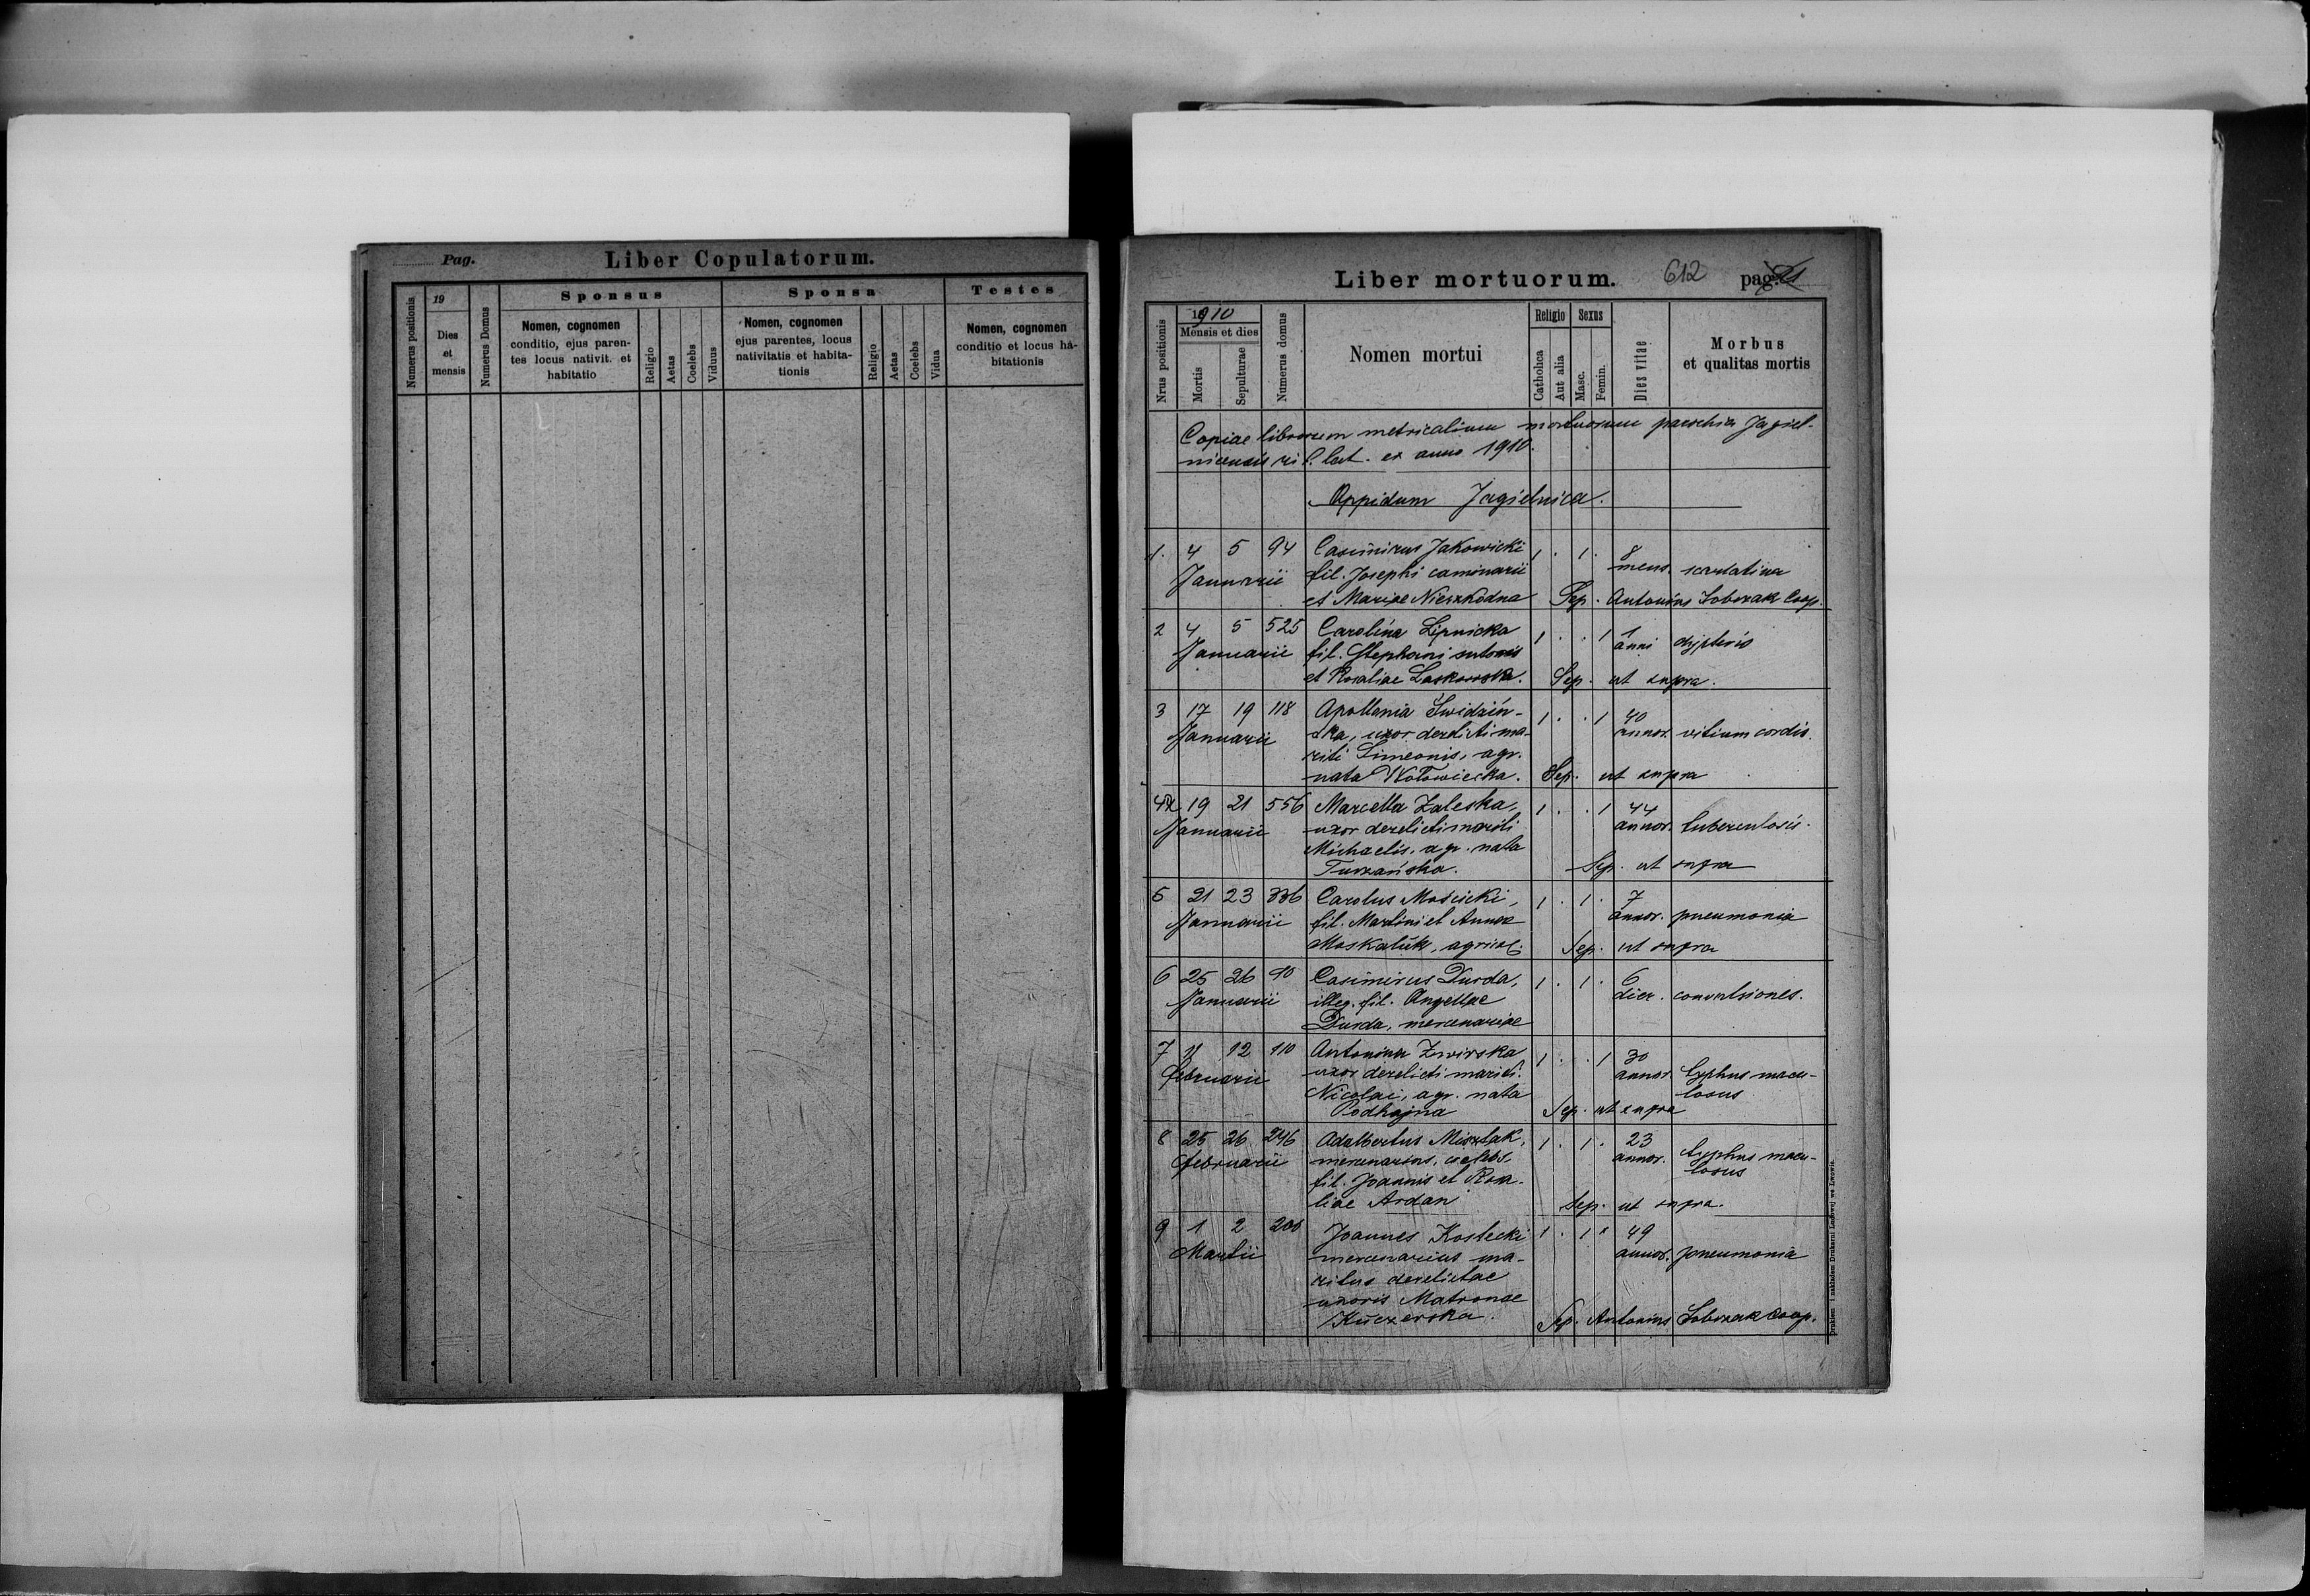 Pag.
Liber Copulatorum.
Numerus positionis
19
Dies
et
mensis
Numerus Domus
Sponsus
Nomen, cognomen
conditio, ejus paren-
tes locus nativit. et
habitatio
Religio
Aetas
Coelebs
Viduus
Sponsa
Nomen, cognomen
ejus parentes, locus
nativitatis et habita-
tionis
Religio
Aetas
Coelebs
Vidua
Testes
Nomen, cognomen
conditio et locus ha-
bitationis
Liber mortuorum. 612 pag.
Nrus positionis
1910
Mensis et dies
Mortis
Sepulturae
Numerus domus
Nomen mortui
Religio
Catholica
Aut alia
Sexus
Masc.
Femin.
Dies vitae
Morbus
et qualitas mortis
Copiae librorum metricalium mortuorum parochia Jagiel-
nicensis rit. lat. ex anno 1910.
Oppidum Jagielnica.
1. 4 5 94 Casimirus Jakowicki 1 . 1 . 8
Januarii fil. Josephi caminarii mens. scarlatina
et Mariae Nieszkodna Sep. Antonius Sobczak Coop.
2 4 5 525 Carolina Lipnicka 1 . . 1 1
Januarii fil. Stephani sutoris anni dypteris
et Rosaliae Laskowska. Sep. ut supra.
3 17 19 118 Apollonia Swidziń- 1 . . 1 40
Januarii ska, uxor derelicti ma- annor. vitium cordis.
riti Simeonis, agr.
nata Wołowiecka. Sep. ut supra
4 19 21 556 Marcella Zaleska, 1 . . 1 44
Januarii uxor derelicti mariti annor. tuberculosis.
Michaelis, agr. nata
Turzańska. Sep. ut supra
5 21 23 336 Carolus Mościcki, 1 . 1 . 7
Januarii fil. Martini et Annae annor. pneumonia
Moskaluk, agricol. Sep. ut supra
6 25 26 90 Casimirus Durda, 1 . 1 . 6
Januarii illeg. fil. Angellae dier. convulsiones.
Durda, mercenariae
7 11 12 110 Antonina Zwirska 1 . . 1 30
Februarii uxor derelicti mariti annor. typhus macu-
Nicolai, agr. nata losus
Podhajna Sep. ut supra
8 25 26 246 Adalbertus Misztak, 1 . 1 . 23
Februarii mercenarius, caelebs, annor. typhus macu-
fil. Joannis et Rosa- losus
liae Ardan Sep. ut supra.
9 1 2 200 Joannes Kostecki 1 . 1 . 49
Martii mercenarius ma- annor. pneumonia
ritus derelictae
uxoris Matronae
Kuczerska. Sep. Antonius Sobczak Coop.
Drukiem i nakładem Drukarni Ludowej we Lwowie.